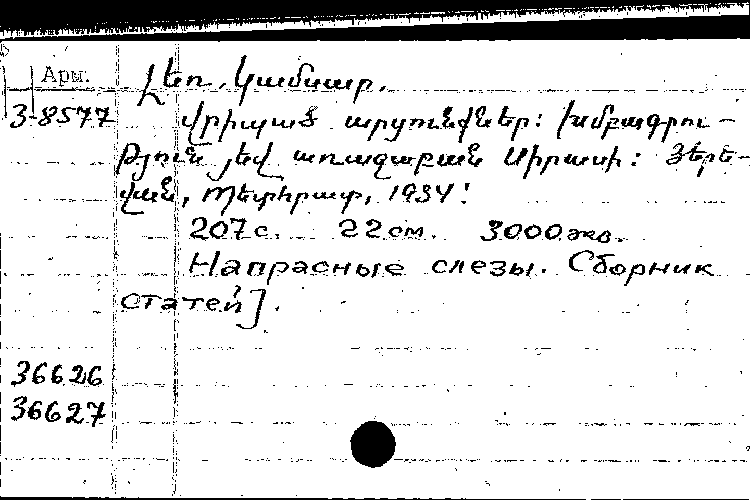 Арм.
Լեռ. Կամսար.
3-8577 Վրիպած արցունքներ: Խմբագրու-
թյուն յեվ առաջաբան Սիրասի: Յերե-
վան, Պետհրատ, 1934!
207 с. 22 см. 3000 экз.
Напрасные слезы. Сборник
статей].
36626
36627